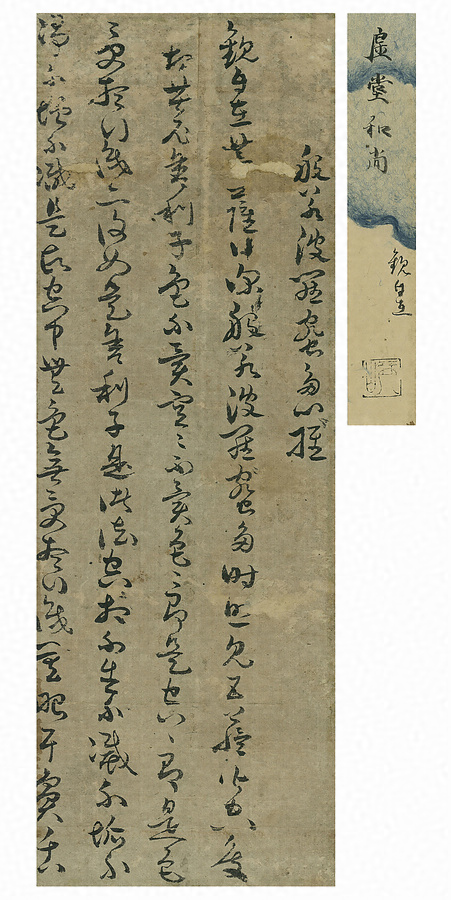 虚堂和尚
観自在
般若波羅蜜多心経
観自在菩薩行深般若波羅蜜多時照見五蘊皆空度
一切苦厄舎利子色不異空々不異色々即是空々即是色
受想行識亦復如是舎利子是諸法空相不生不滅不垢不
浄不増不減是故空中無色無受想行識無眼耳鼻舌